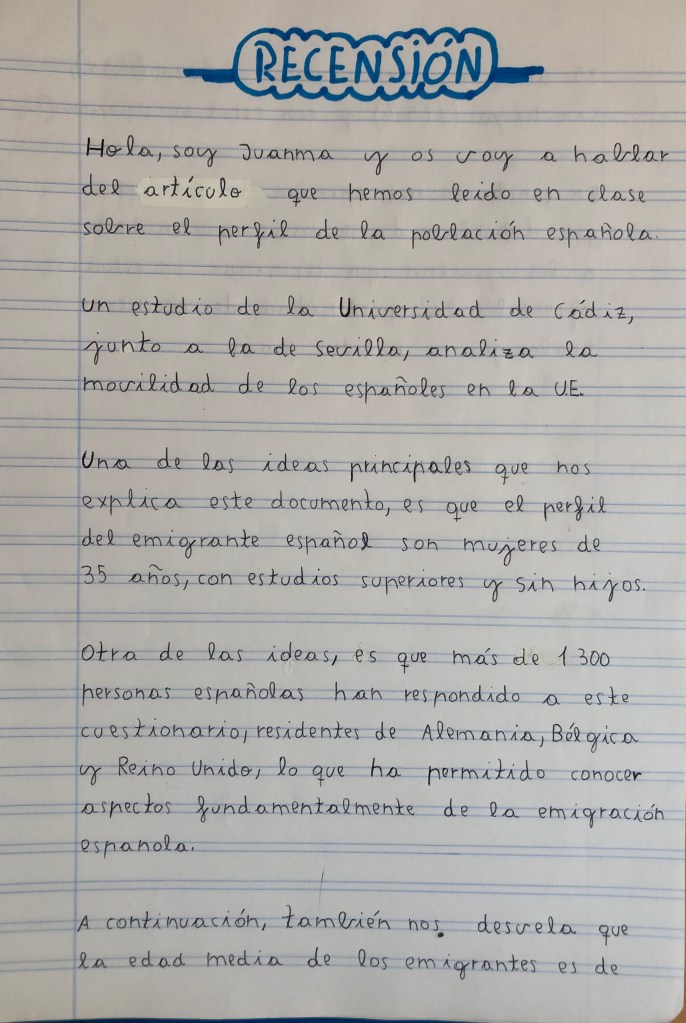 RECENSIÓN
Hola, soy Juanma y os voy a hablar
del artículo que hemos leido en clase
sobre el perfil de la población española.
Un estudio de la Universidad de Cádiz,
junto a la de sevilla, analiza la
movilidad de los españoles en la U.E.
Una de las ideas principales que nos
explica este documento, es que el perfil
del emigrante español son mujeres de
35 años, con estudios superiores y sin hijos.
Otra de las ideas, es que más de 1 300
personas españolas han respondido a este
cuestionario, residentes de Alemania, Bélgica
y Reino Unido, lo que ha permitido conocer
aspectos fundamentalmente de la emigración
espanola.
A continuación, también nos desvela que
la edad media de los emigrantes es de